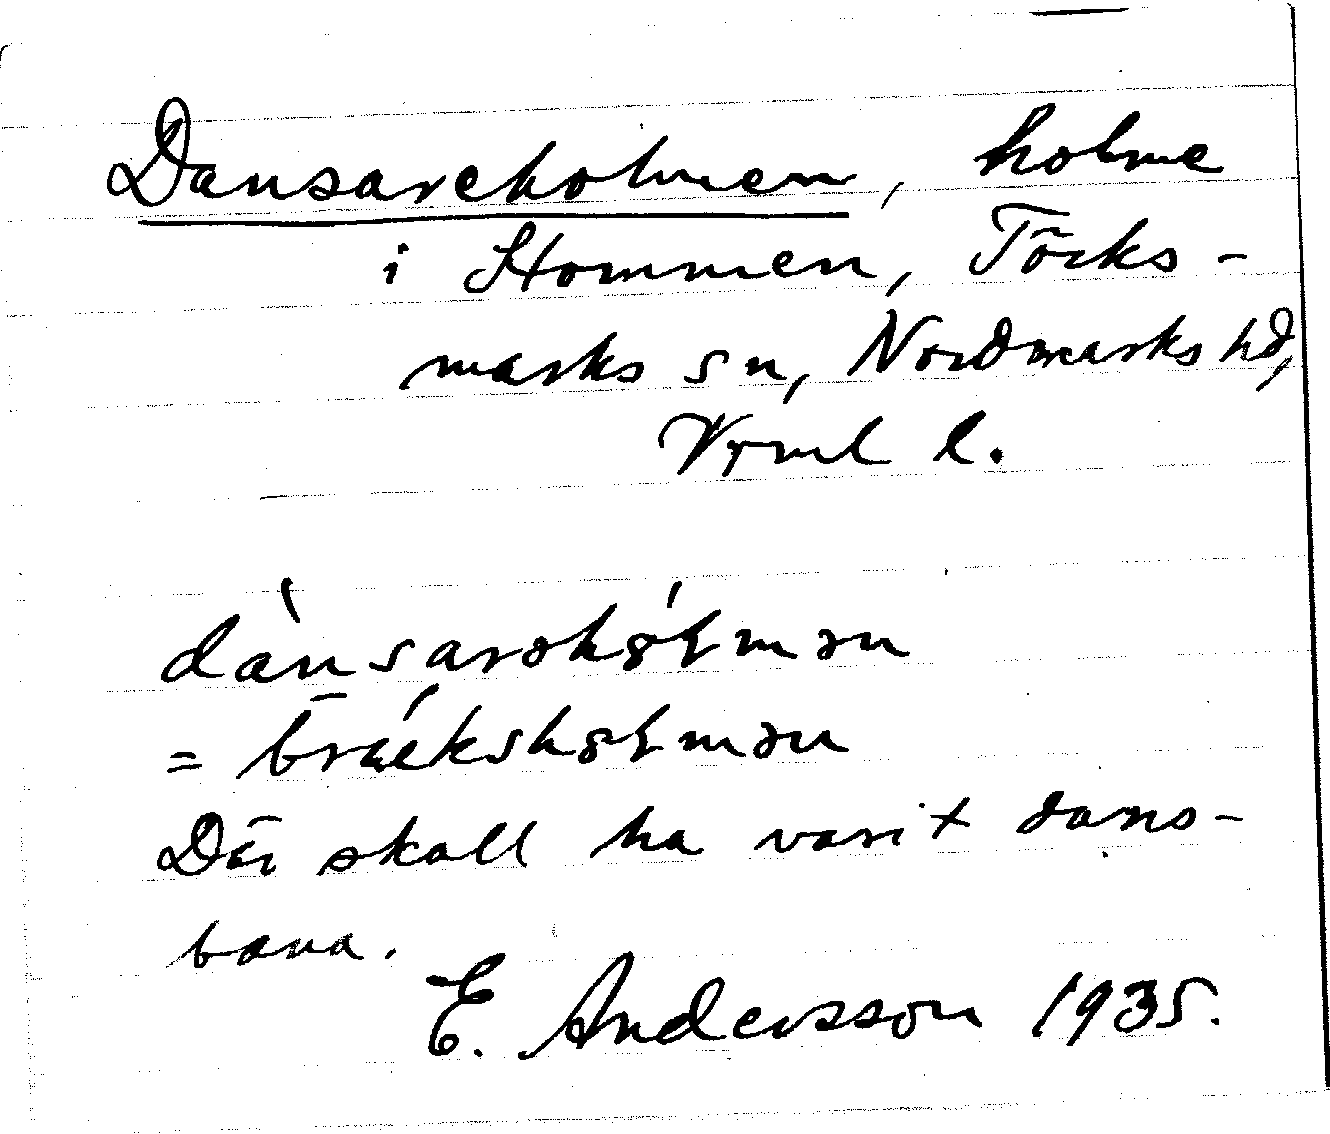 Dansareholmen, holme
i Hommen, Töcks-
marks sn, Nordmarks hd,
Vrml l.
dànsarəhȯɫmən
= bræ̅́kshȯɫmən
Där skall ha varit dans-
bana.
E. Andersson 1935.